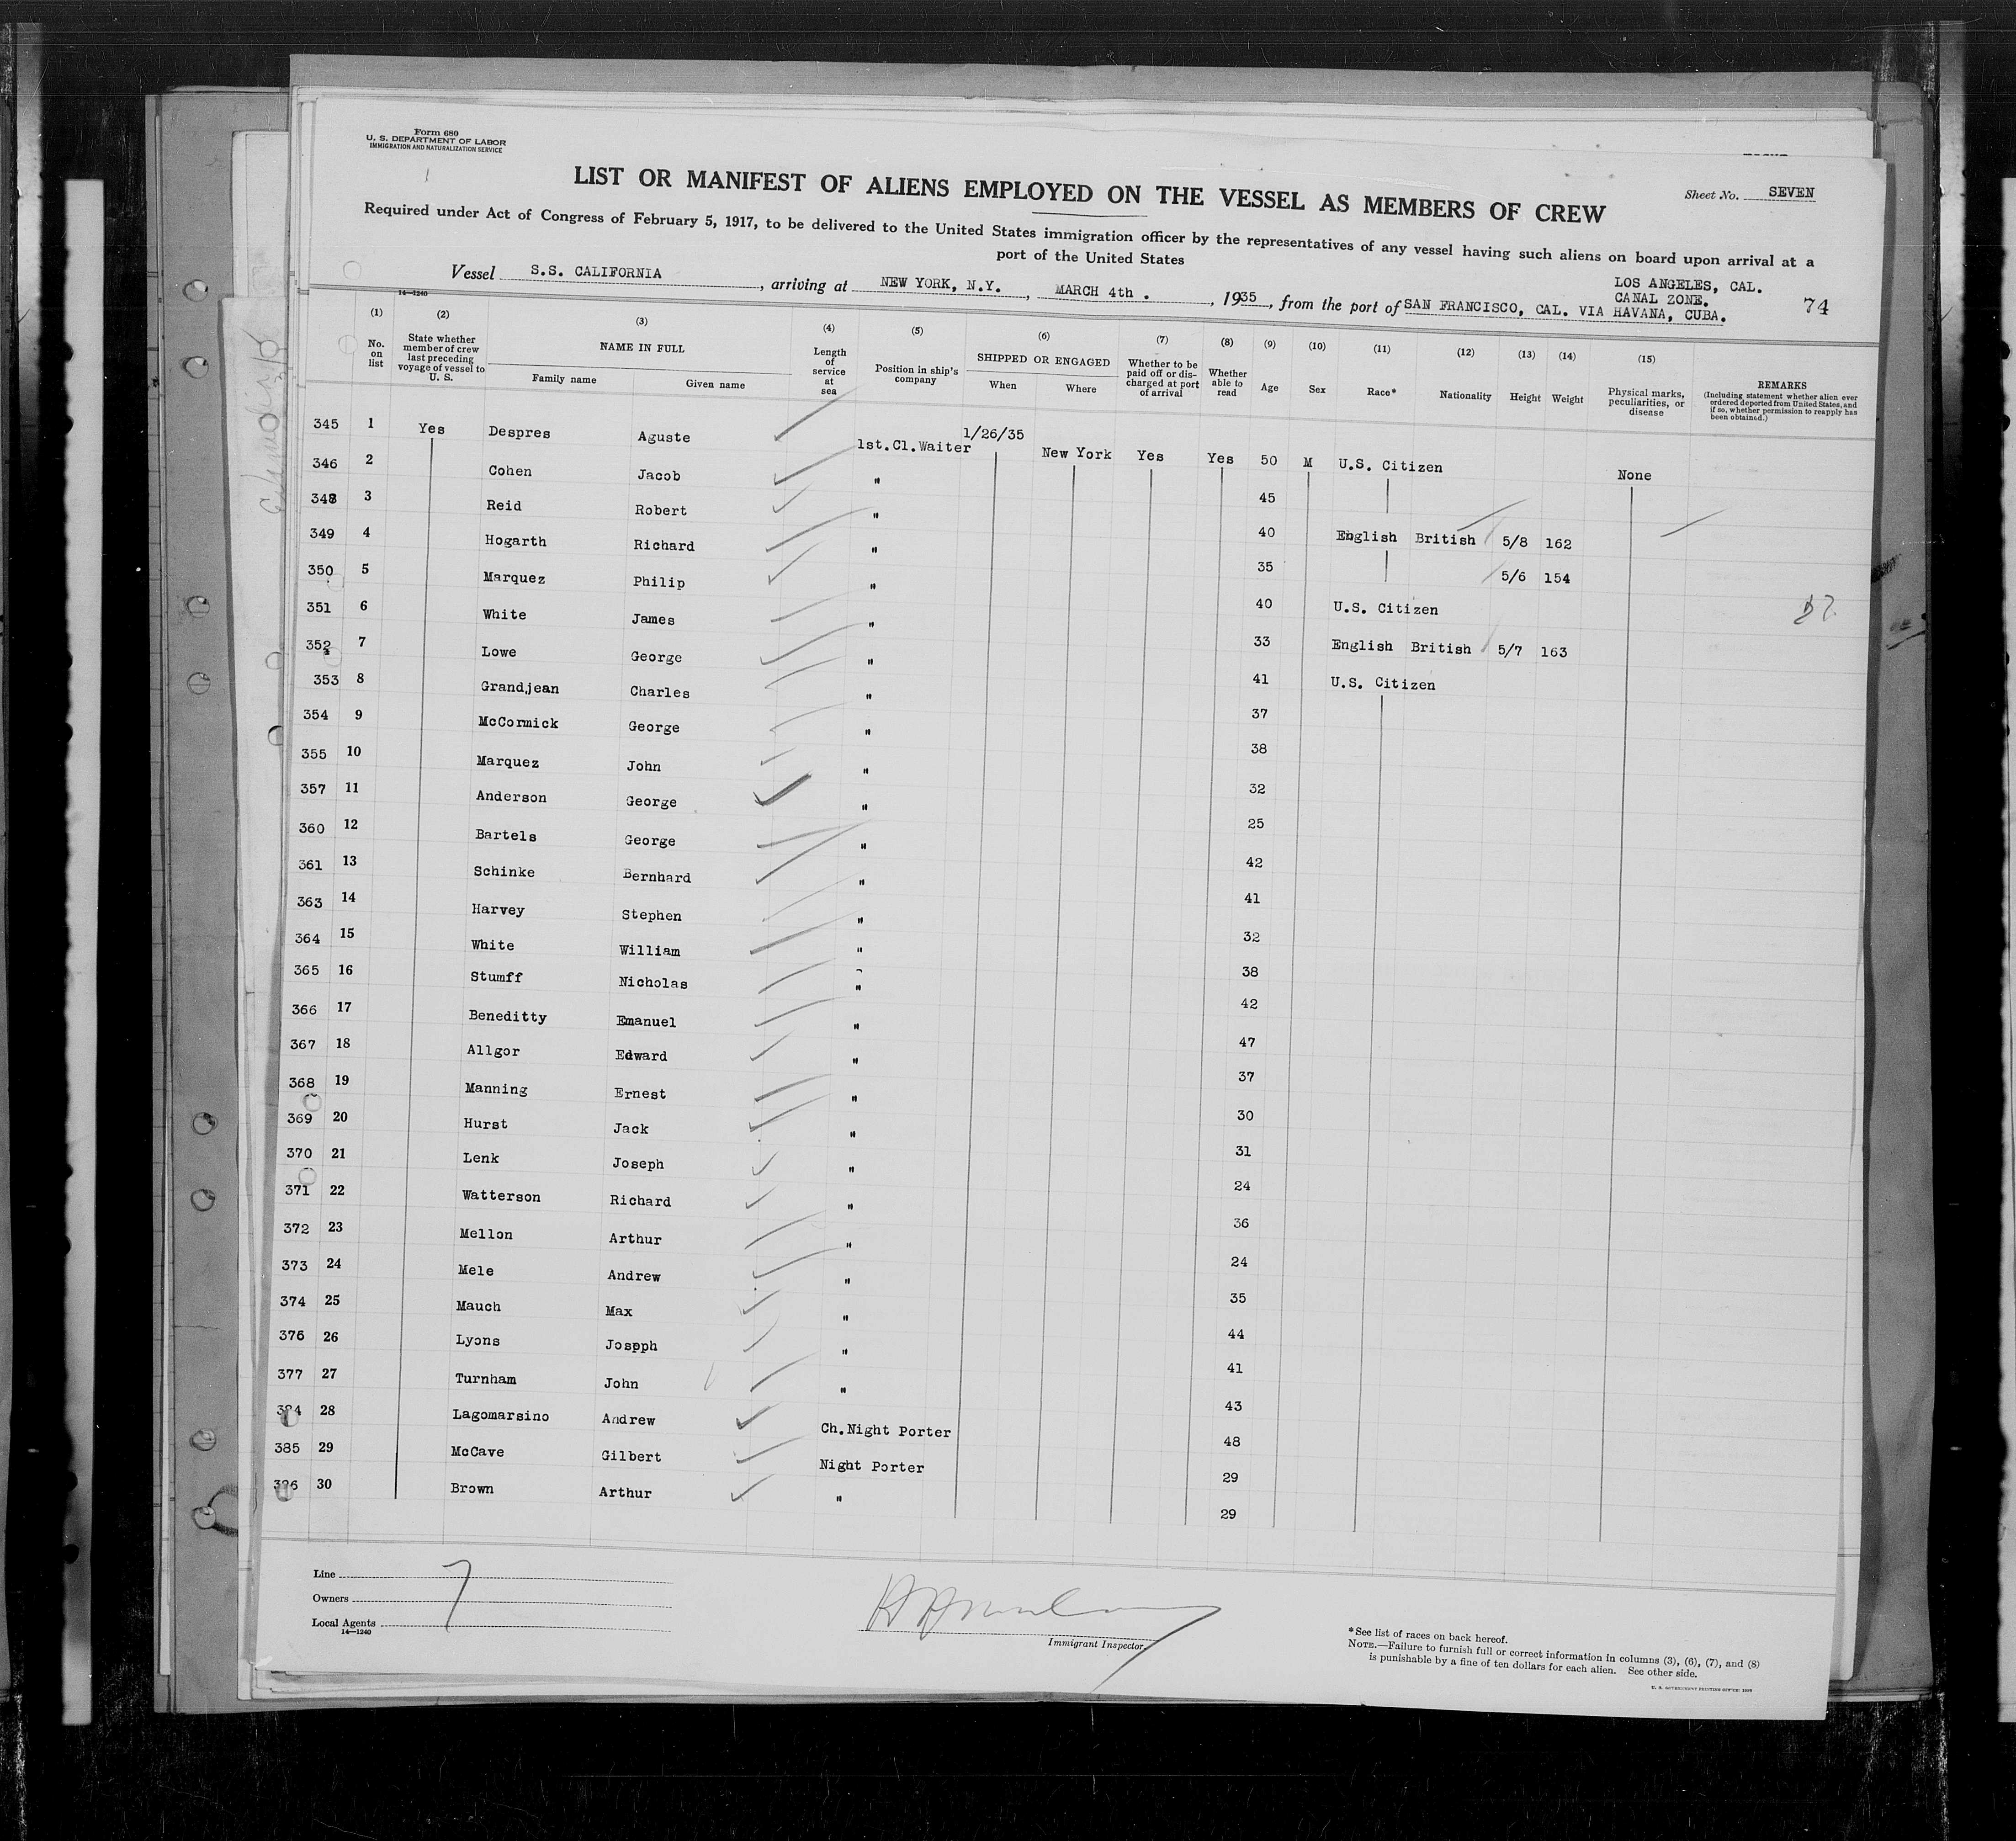 Form 680
U. S. DEPARTMENT OF LABOR
IMMIGRATION AND NATURALIZATION SERVICE
LIST OR MANIFEST OF ALIENS EMPLOYED ON THE VESSEL AS MEMBERS OF CREW
Sheet No. SEVEN
Required under Act of Congress of February 5, 1917, to be delivered to the United States immigration officer by the representatives of any vessel having such aliens on board upon arrival at a
port of the United States
Vessel S.S. CALIFORNIA, arriving at NEW YORK, N.Y., MARCH 4th ., 1935, from the port of SAN FRANCISCO, CAL. VIA HAVANA, CUBA.
LOS ANGELES, CAL.
CANAL ZONE.
74
14—1240
(1) No. on list
(2) State whether member of crew last preceding voyage of vessel to U. S.
(3) NAME IN FULL Family name Given name
(4) Length of service at sea
(5) Position in ship's company
(6) SHIPPED OR ENGAGED When Where
(7) Whether to be paid off or discharged at port of arrival
(8) Whether able to read
(9) Age
(10) Sex
(11) Race*
(12) Nationality
(13) Height
(14) Weight
(15) Physical marks, peculiarities, or disease
REMARKS (Including statement whether alien ever ordered deported from United States, and if so, whether permission to reapply has been obtained.)
345 1 Yes Despres Aguste 1st.Cl.Waiter 1/26/35 New York Yes Yes 50 M U.S. Citizen None
346 2 Cohen Jacob " 45
348 3 Reid Robert " 40 English British 5/8 162
349 4 Hogarth Richard " 35 5/6 154
350 5 Marquez Philip " 40 U.S. Citizen
351 6 White James " 33 English British 5/7 163
352 7 Lowe George " 41 U.S. Citizen
353 8 Grandjean Charles " 37
354 9 McCormick George " 38
355 10 Marquez John " 32
357 11 Anderson George " 25
360 12 Bartels George " 42
361 13 Schinke Bernhard " 41
363 14 Harvey Stephen " 32
364 15 White William " 38
365 16 Stumff Nicholas " 42
366 17 Beneditty Emanuel " 47
367 18 Allgor Edward " 37
368 19 Manning Ernest " 30
369 20 Hurst Jack " 31
370 21 Lenk Joseph " 24
371 22 Watterson Richard " 36
372 23 Mellon Arthur " 24
373 24 Mele Andrew " 35
374 25 Mauch Max " 44
376 26 Lyons Jospph " 41
377 27 Turnham John " 43
384 28 Lagomarsino Andrew Ch.Night Porter 48
385 29 McCave Gilbert Night Porter 29
386 30 Brown Arthur " 29
Line
Owners
Local Agents
14—1240
7
Immigrant Inspector.
*See list of races on back hereof.
NOTE.—Failure to furnish full or correct information in columns (3), (6), (7), and (8)
is punishable by a fine of ten dollars for each alien. See other side.